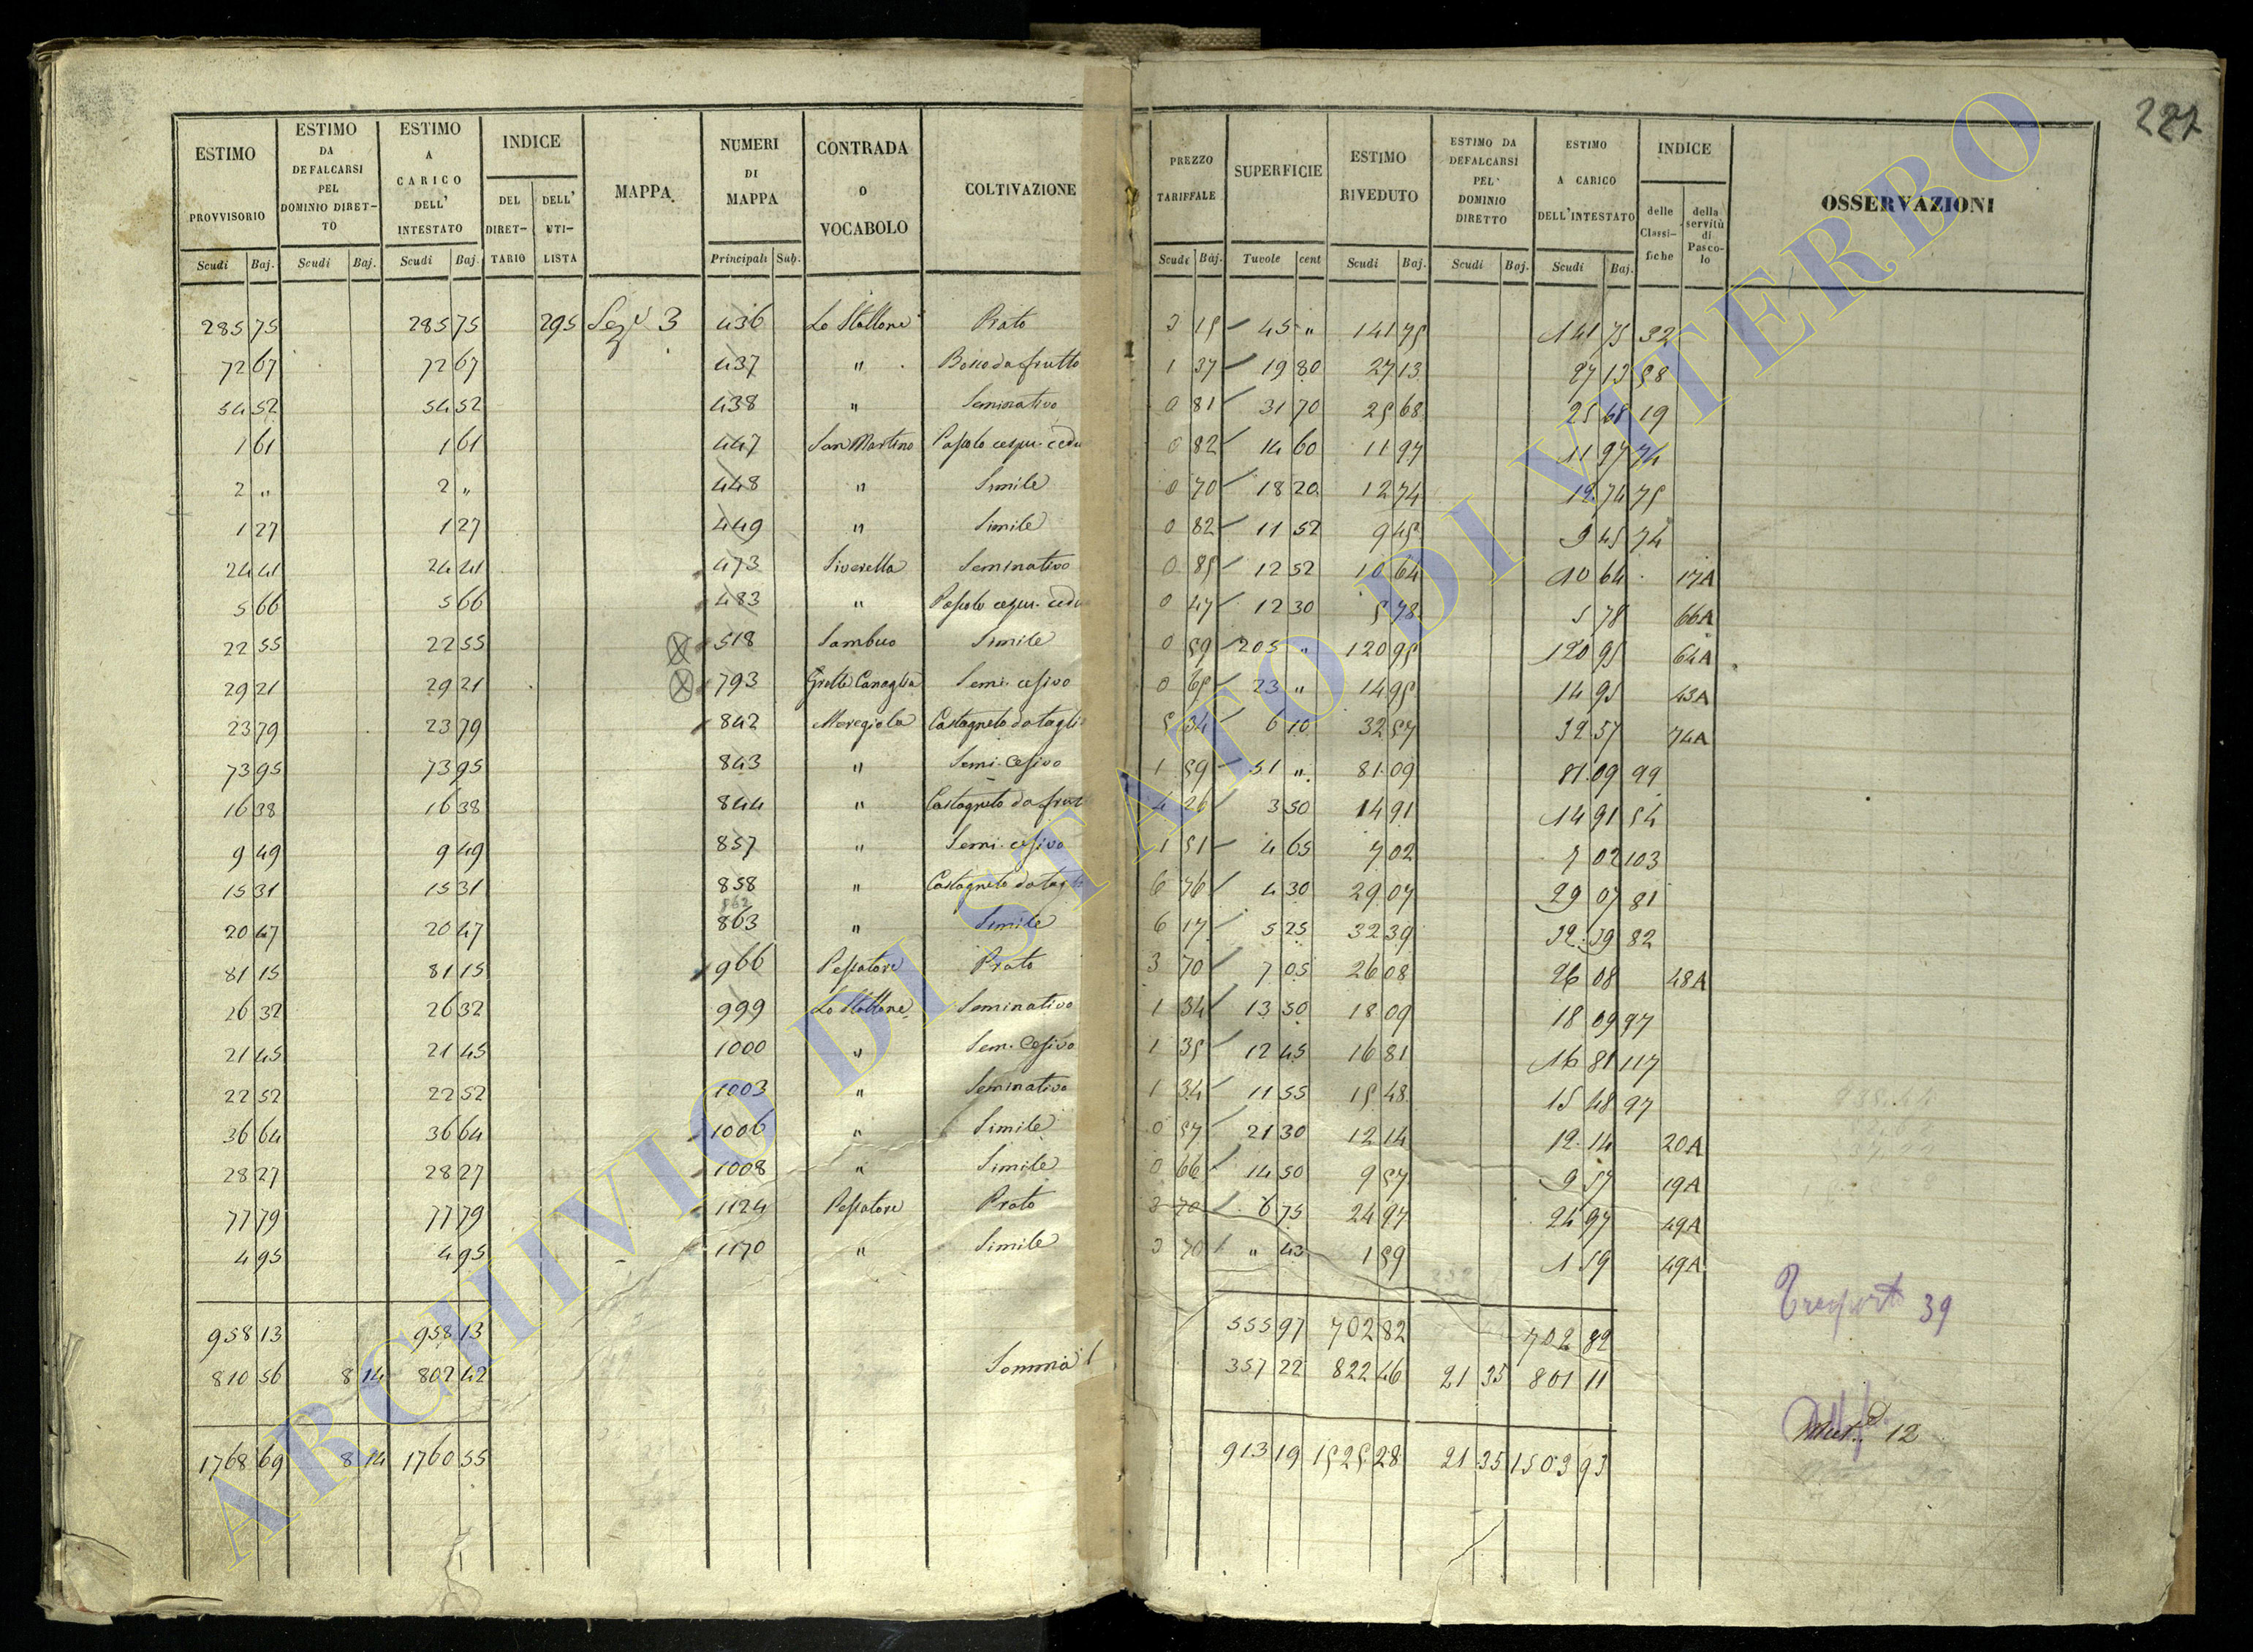 227
ESTIMO PROVVISORIO Scudi Baj. | ESTIMO DA DEFALCARSI PEL DOMINIO DIRETTO Scudi Baj. | ESTIMO A CARICO DELL' INTESTATO Scudi Baj. | INDICE DEL DIRETTARIO DELL' UTILISTA | MAPPA. | NUMERI DI MAPPA Principali Sub. | CONTRADA O VOCABOLO | COLTIVAZIONE | PREZZO TARIFFALE Scudi Baj. | SUPERFICIE Tavole cent | ESTIMO RIVEDUTO Scudi Baj. | ESTIMO DA DEFALCARSI PEL DOMINIO DIRETTO Scudi Baj. | ESTIMO A CARICO DELL'INTESTATO Scudi Baj. | INDICE delle Classifiche della servitù di Pascolo | OSSERVAZIONI
285 75 285 75 295 Sez. 3 436 Lo Stallone Prato 3 15 45 " 141 75 141 75 32
72 67 72 67 437 " Bosco da frutto 1 37 19 80 27 13 27 13 58
54 52 54 52 438 " Seminativo 0 81 31 70 25 68 25 68 19
1 61 1 61 447 San Martino Pascolo cespu. cedu 0 82 14 60 11 97 11 97 74
2 " 2 " 448 " Simile 0 70 18 20 12 74 12 74 75
1 27 1 27 449 " Simile 0 82 11 52 9 45 9 45 74
24 41 24 41 473 Siverella Seminativo 0 85 12 52 10 64 10 64 17A
5 66 5 66 483 " Pascolo cespu. cedu 0 47 12 30 5 78 5 78 66A
22 55 22 55 518 Sambuco Simile 0 59 205 " 120 95 120 95 64A
29 21 29 21 793 Grotte Canaglia Semi. cesivo 0 65 23 " 14 95 14 95 43A
23 79 23 79 842 Meregiola Castagneto da taglio 5 34 6 10 32 57 32 57 74A
73 95 73 95 843 " Semi. Cesivo 1 59 51 " 81 09 81 09 99
16 38 16 38 844 " Castagneto da frutt 4 26 3 50 14 91 14 91 54
9 49 9 49 857 " Semi. cesivo 1 51 4 65 7 02 7 02 103
15 31 15 31 858 " Castagneto da tagli 6 76 4 30 29 07 29 07 81
862
20 47 20 47 863 " Simile 6 17 5 25 32 39 32 39 82
81 15 81 15 966 Pescatore Prato 3 70 7 05 26 08 26 08 48A
26 32 26 32 999 Lo Stallone Seminativo 1 34 13 50 18 09 18 09 97
21 45 21 45 1000 " Sem. Cesivo 1 35 12 45 16 81 16 81 117
22 52 22 52 1003 " Seminativo 1 34 11 55 15 48 15 48 97
36 64 36 64 1006 " Simile 0 57 21 30 12 14 12 14 20A
28 27 28 27 1008 " Simile 0 66 14 50 9 57 9 57 19A
77 79 77 79 1124 Pescatore Prato 3 70 6 75 24 97 24 97 49A
4 95 4 95 1170 " Simile 3 70 " 43 1 59 1 59 49A
Trasporto 39
958 13 958 13 555 97 702 82 702 82
810 56 8 14 802 42 Somma 357 22 822 46 21 35 801 11
12
1768 69 8 14 1760 55 913 19 1525 28 21 35 1503 93
ARCHIVIO DI STATO DI VITERBO